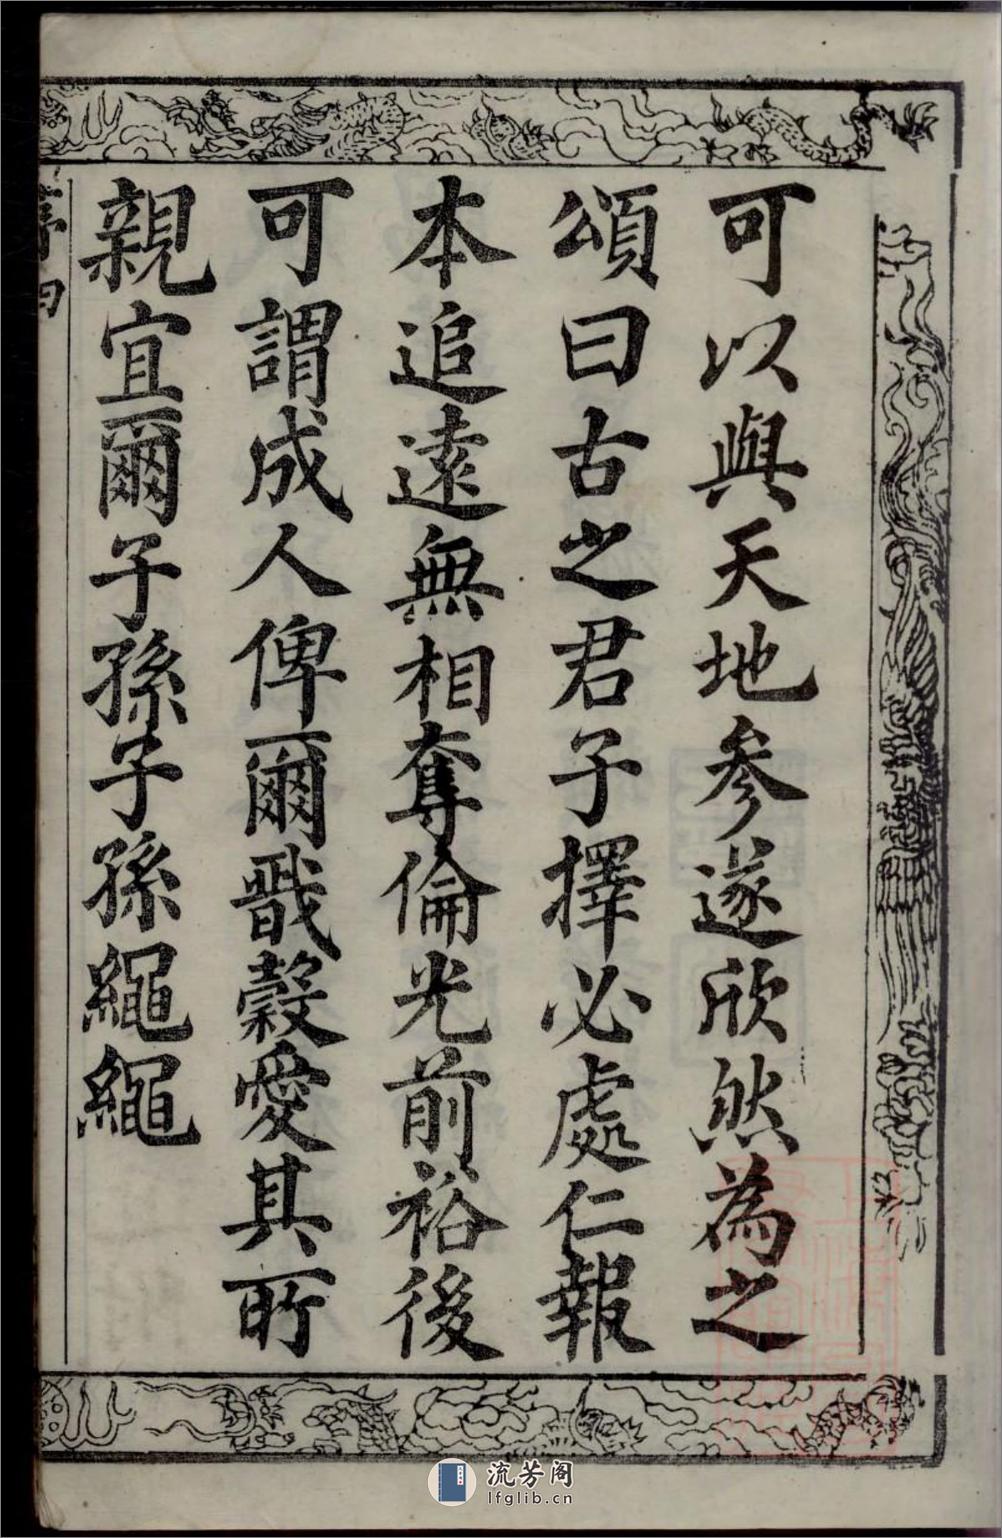 可以與天地參遂欣然為之
頌曰古之君子擇必處仁報
本追遠無相奪倫光前裕後
可謂成人俾爾戩穀愛其所
親宜爾子孫子孫繩繩
序 四
流芳阁
lfglib.cn